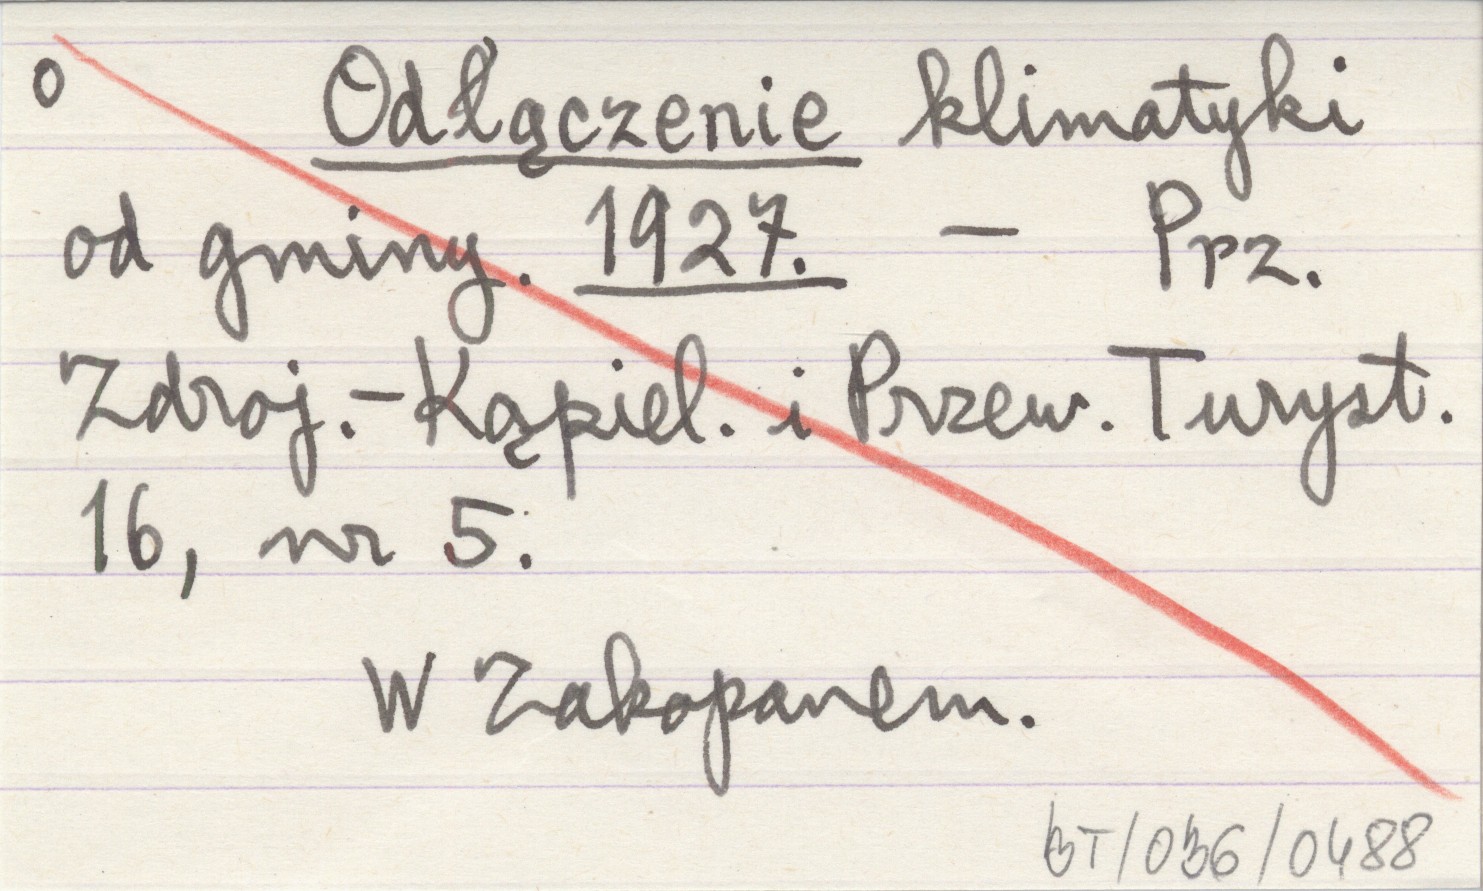 o Odłączenie klimatyki
od gminy. 1927. – Prz.
Zdroj.-Kąpiel. i Przew. Turyst.
16, nr 5.
W Zakopanem.
BT/036/0488